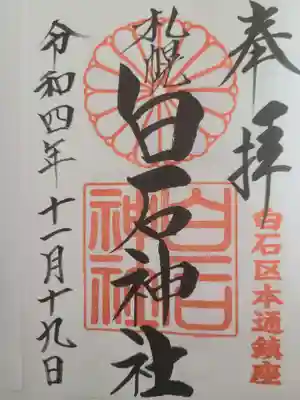 奉拝
白石区本通鎮座
札幌
白石神社
白石神社
令和四年十一月十九日